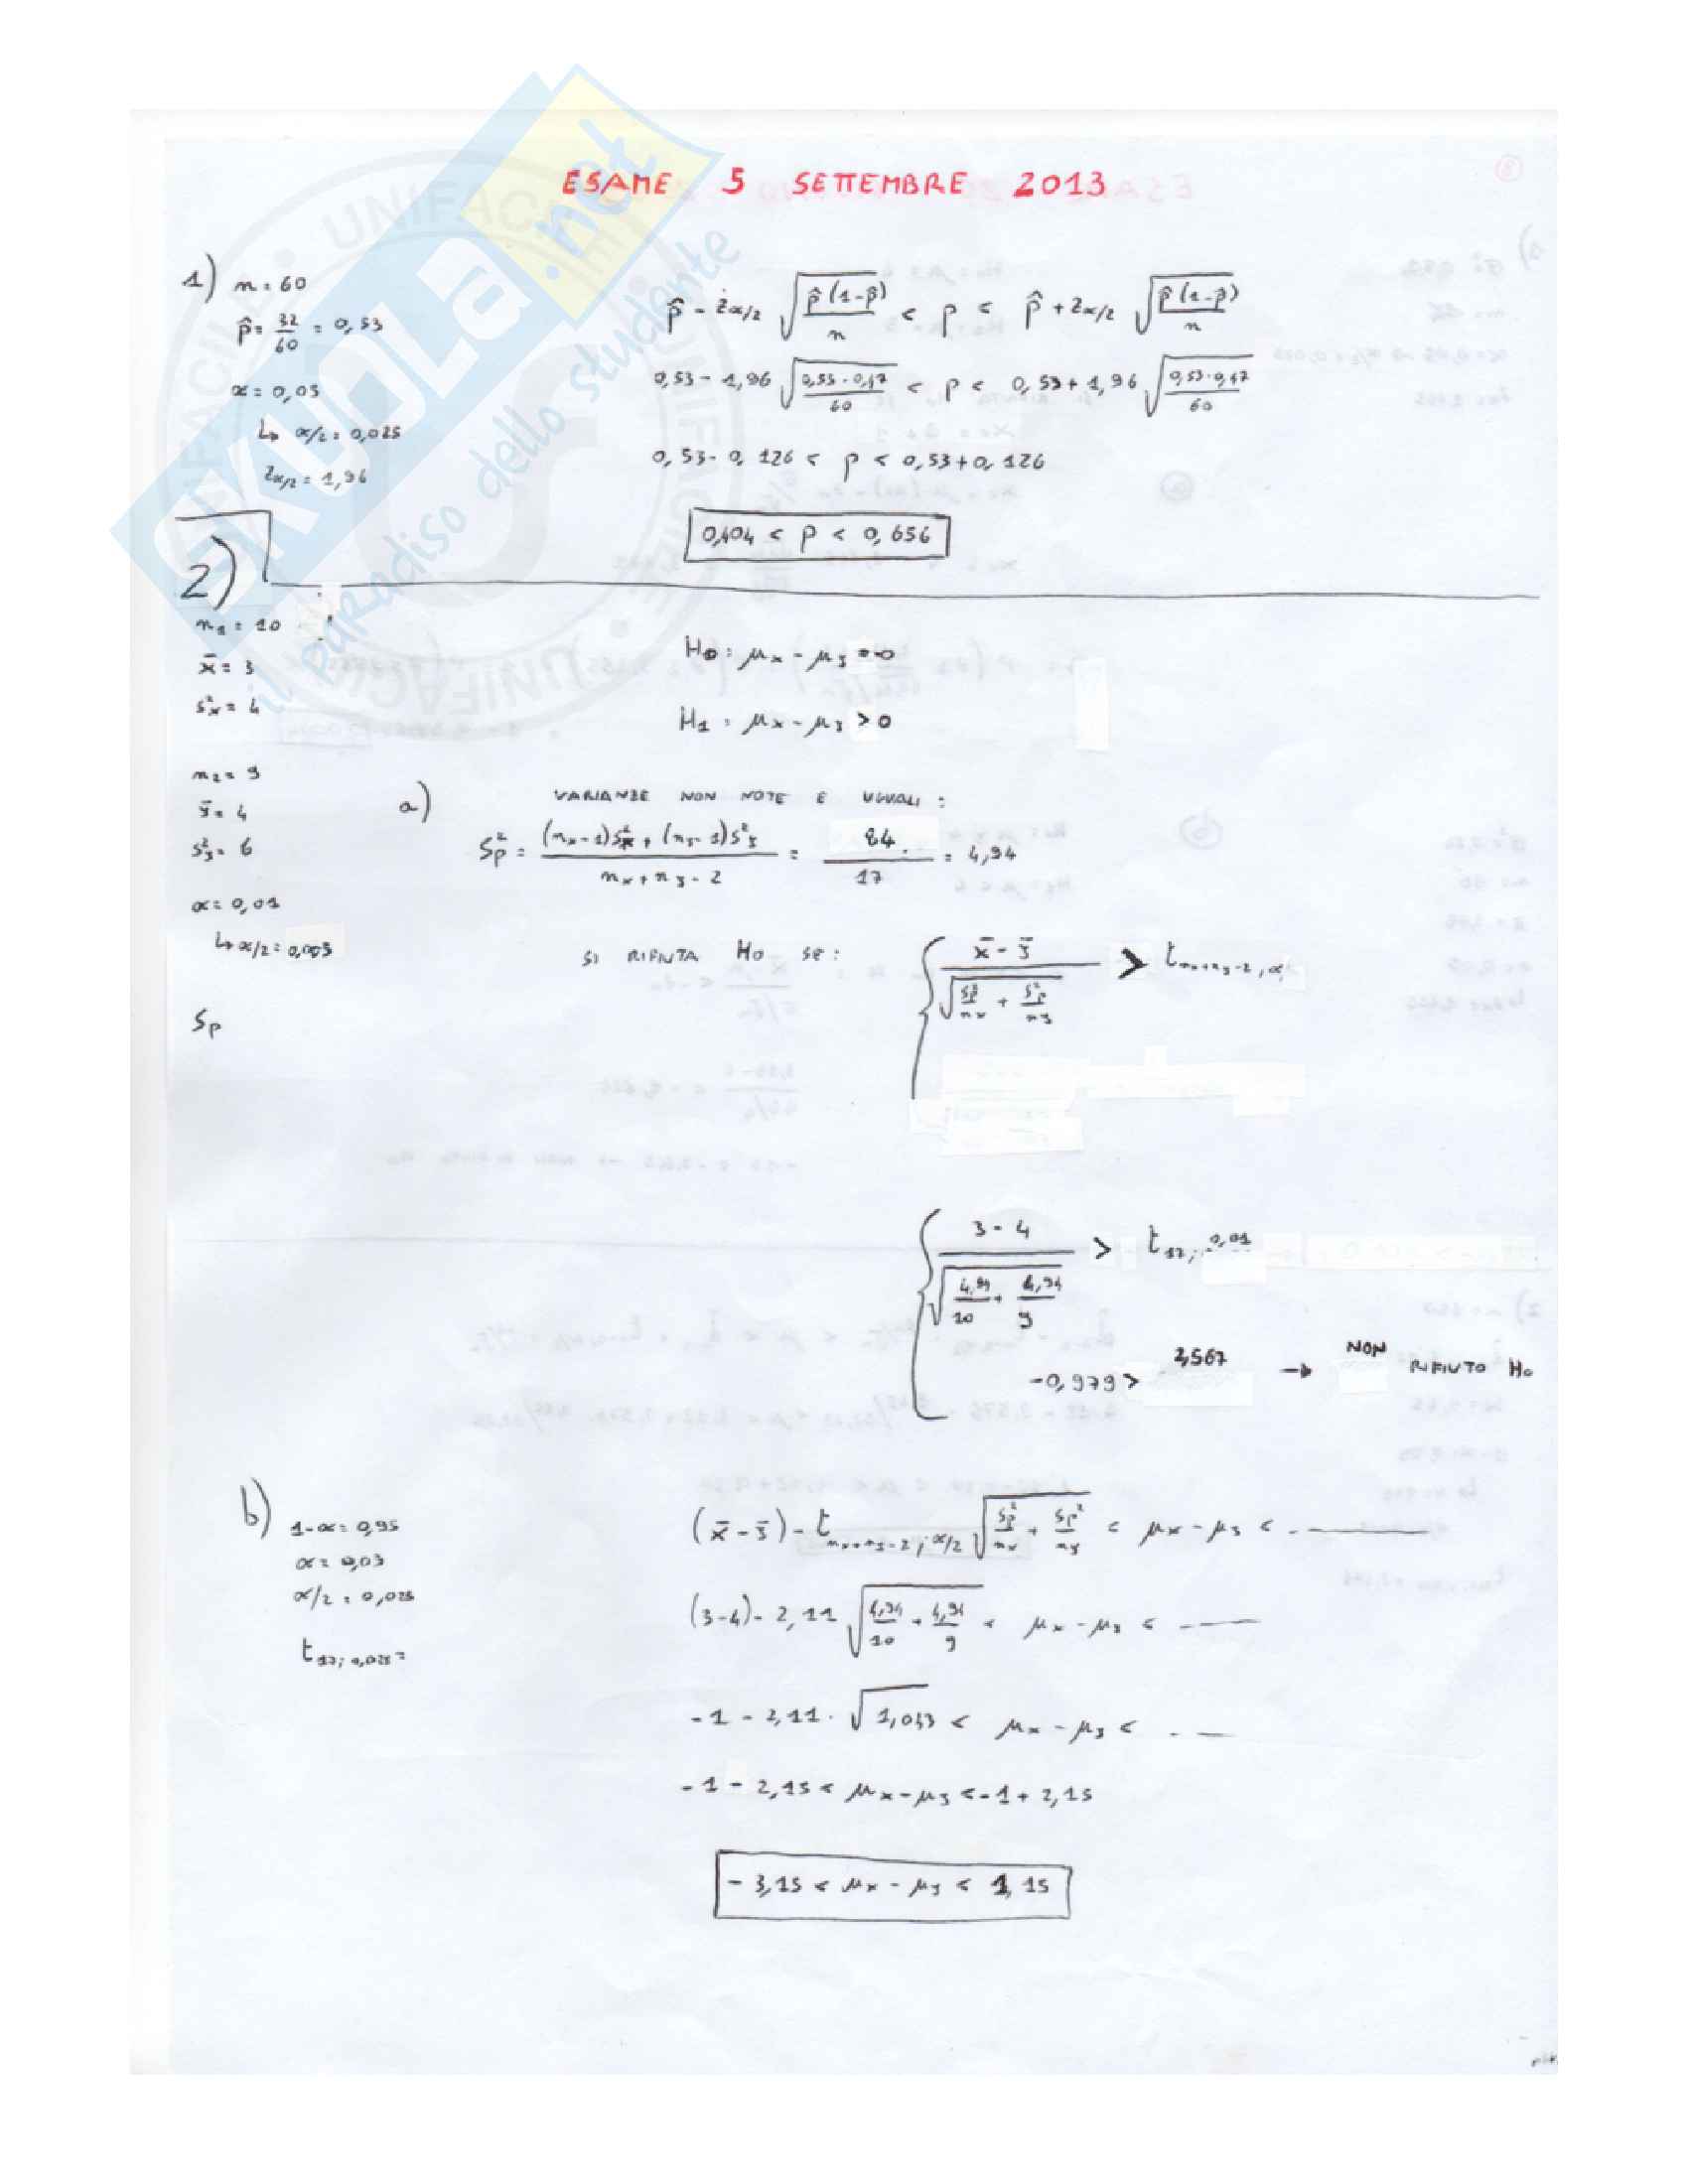 ESAME 5 SETTEMBRE 2013
SKUOLA.net
il paradiso dello studente
UNIFACILE
1) n = 60
p̂ = 32/60 = 0,53
α = 0,05
↳ α/2 = 0,025
z_{α/2} = 1,96
p̂ - z_{α/2} √(p̂(1-p̂)/n) < p < p̂ + z_{α/2} √(p̂(1-p̂)/n)
0,53 - 1,96 √(0,53·0,47/60) < p < 0,53 + 1,96 √(0,53·0,47/60)
0,53 - 0,126 < p < 0,53 + 0,126
0,404 < p < 0,656
2)
n₁ = 10
x̄ = 3
s²ₓ = 4
n₂ = 9
ȳ = 4
s²_y = 6
α = 0,01
↳ α/2 = 0,005
Sp
H₀ : μₓ - μ_y = 0
H₁ : μₓ - μ_y > 0
a) VARIANZE NON NOTE E UGUALI :
Sp² = ((nₓ-1)s²ₓ + (n_y-1)s²_y)/(nₓ+n_y-2) = 84/17 = 4,94
SI RIFIUTA H₀ SE :
(x̄ - ȳ)/√(Sp²/nₓ + Sp²/n_y) > t_{nₓ+n_y-2, α}
(3 - 4)/√(4,94/10 + 4,94/9) > t_{17; 0,01}
-0,979 > 2,567 → NON RIFIUTO H₀
b) 1-α = 0,95
α = 0,05
α/2 = 0,025
t_{17; 0,025} =
(x̄ - ȳ) - t_{nₓ+n_y-2; α/2} √(Sp²/nₓ + Sp²/n_y) < μₓ - μ_y < ..
(3-4) - 2,11 √(4,94/10 + 4,94/9) < μₓ - μ_y < ..
-1 - 2,11 · √1,043 < μₓ - μ_y < ..
-1 - 2,15 < μₓ - μ_y < -1 + 2,15
-3,15 < μₓ - μ_y < 1,15